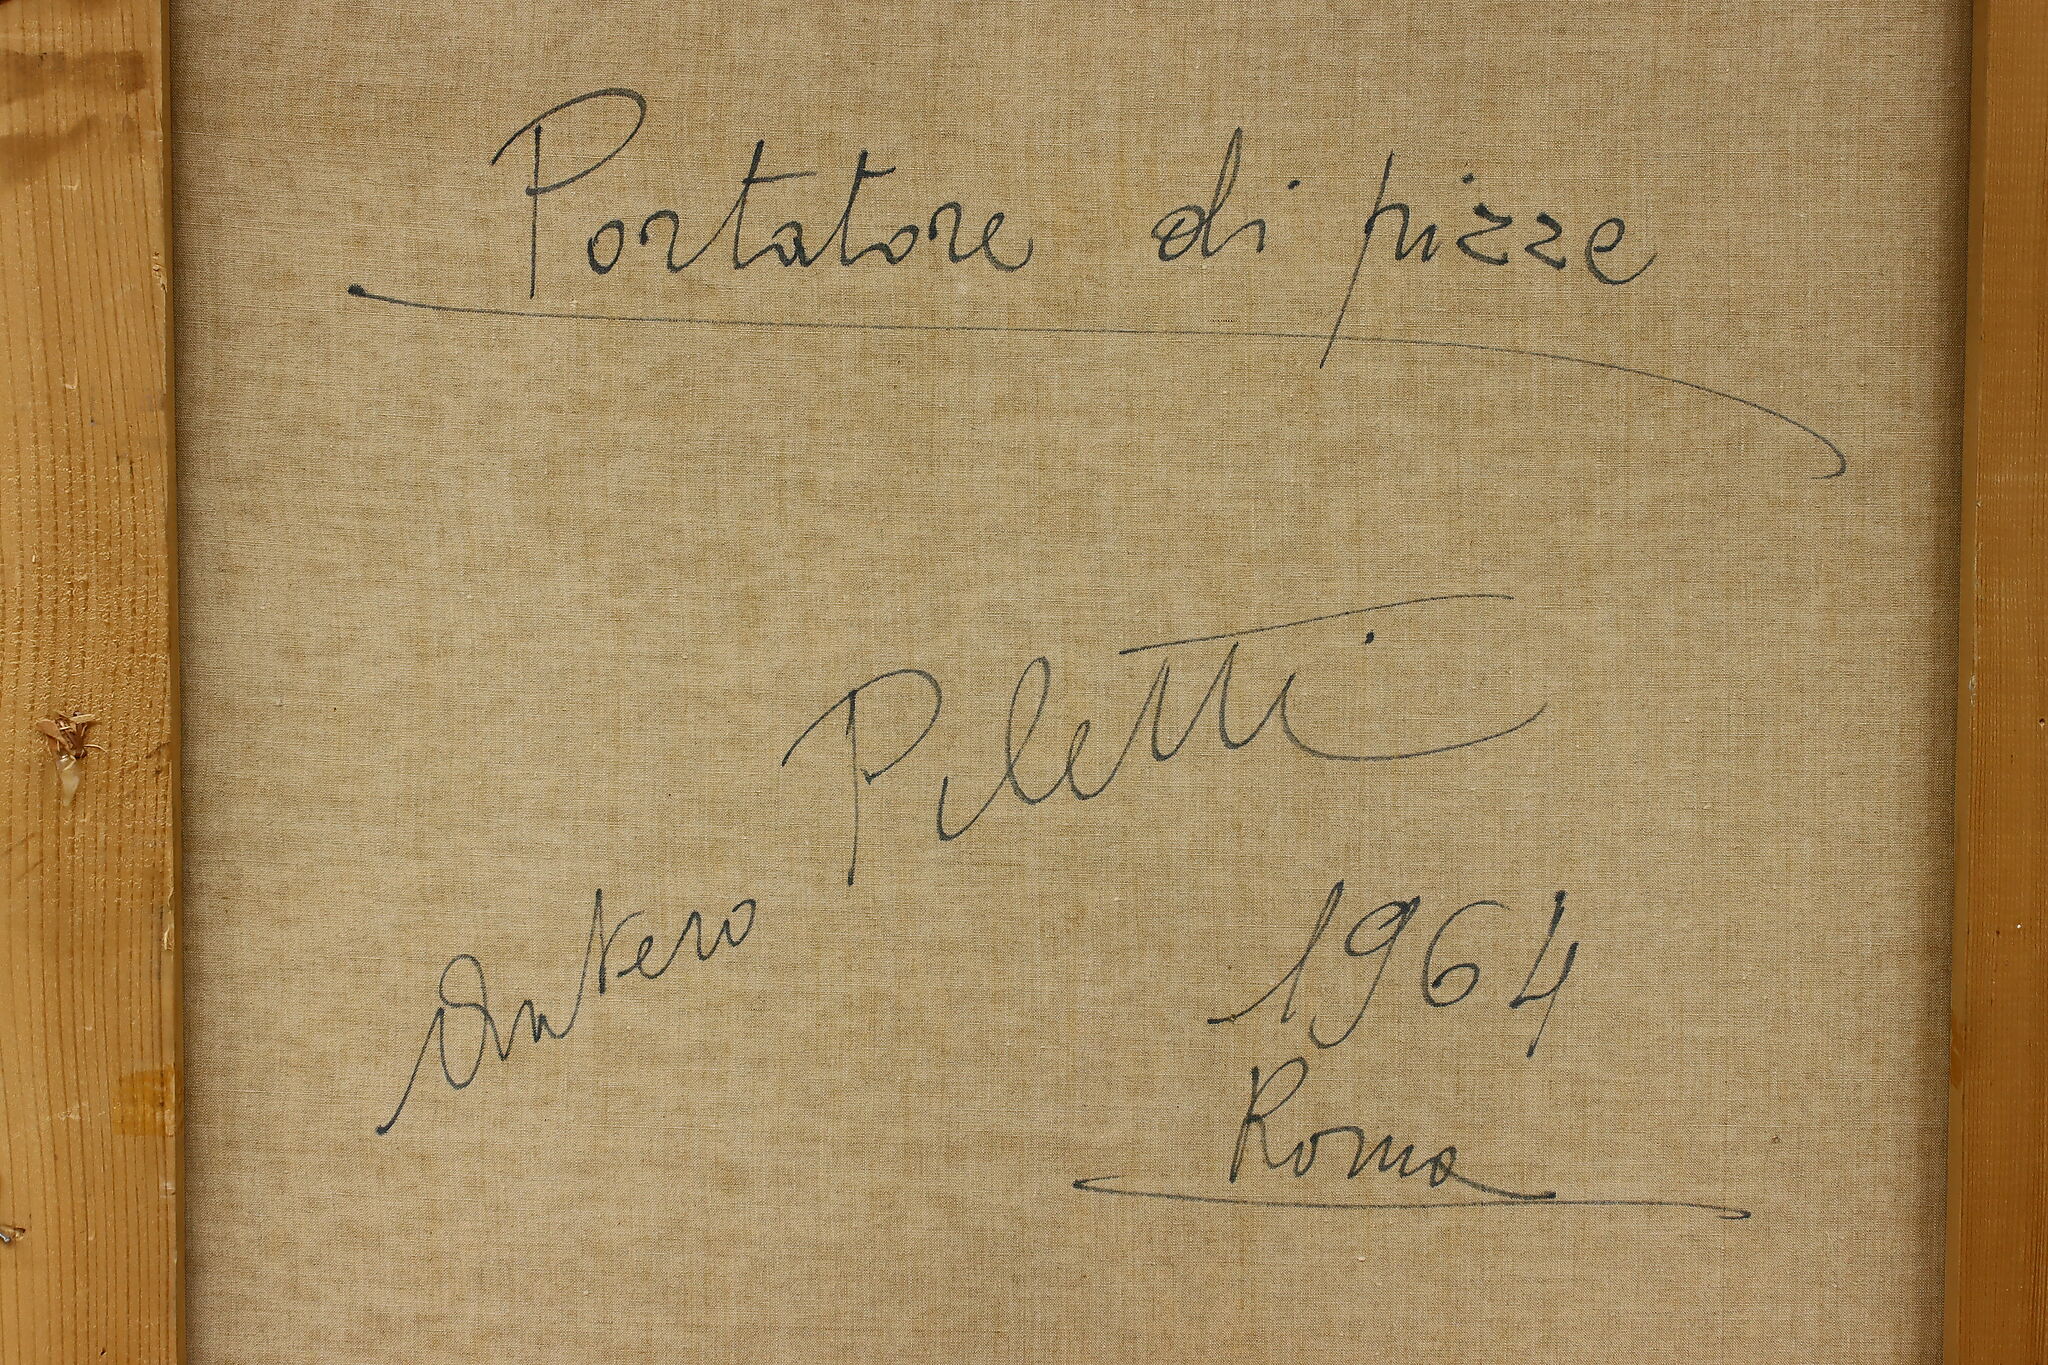 Portatore di pizze
Antero Piletti
1964
Roma